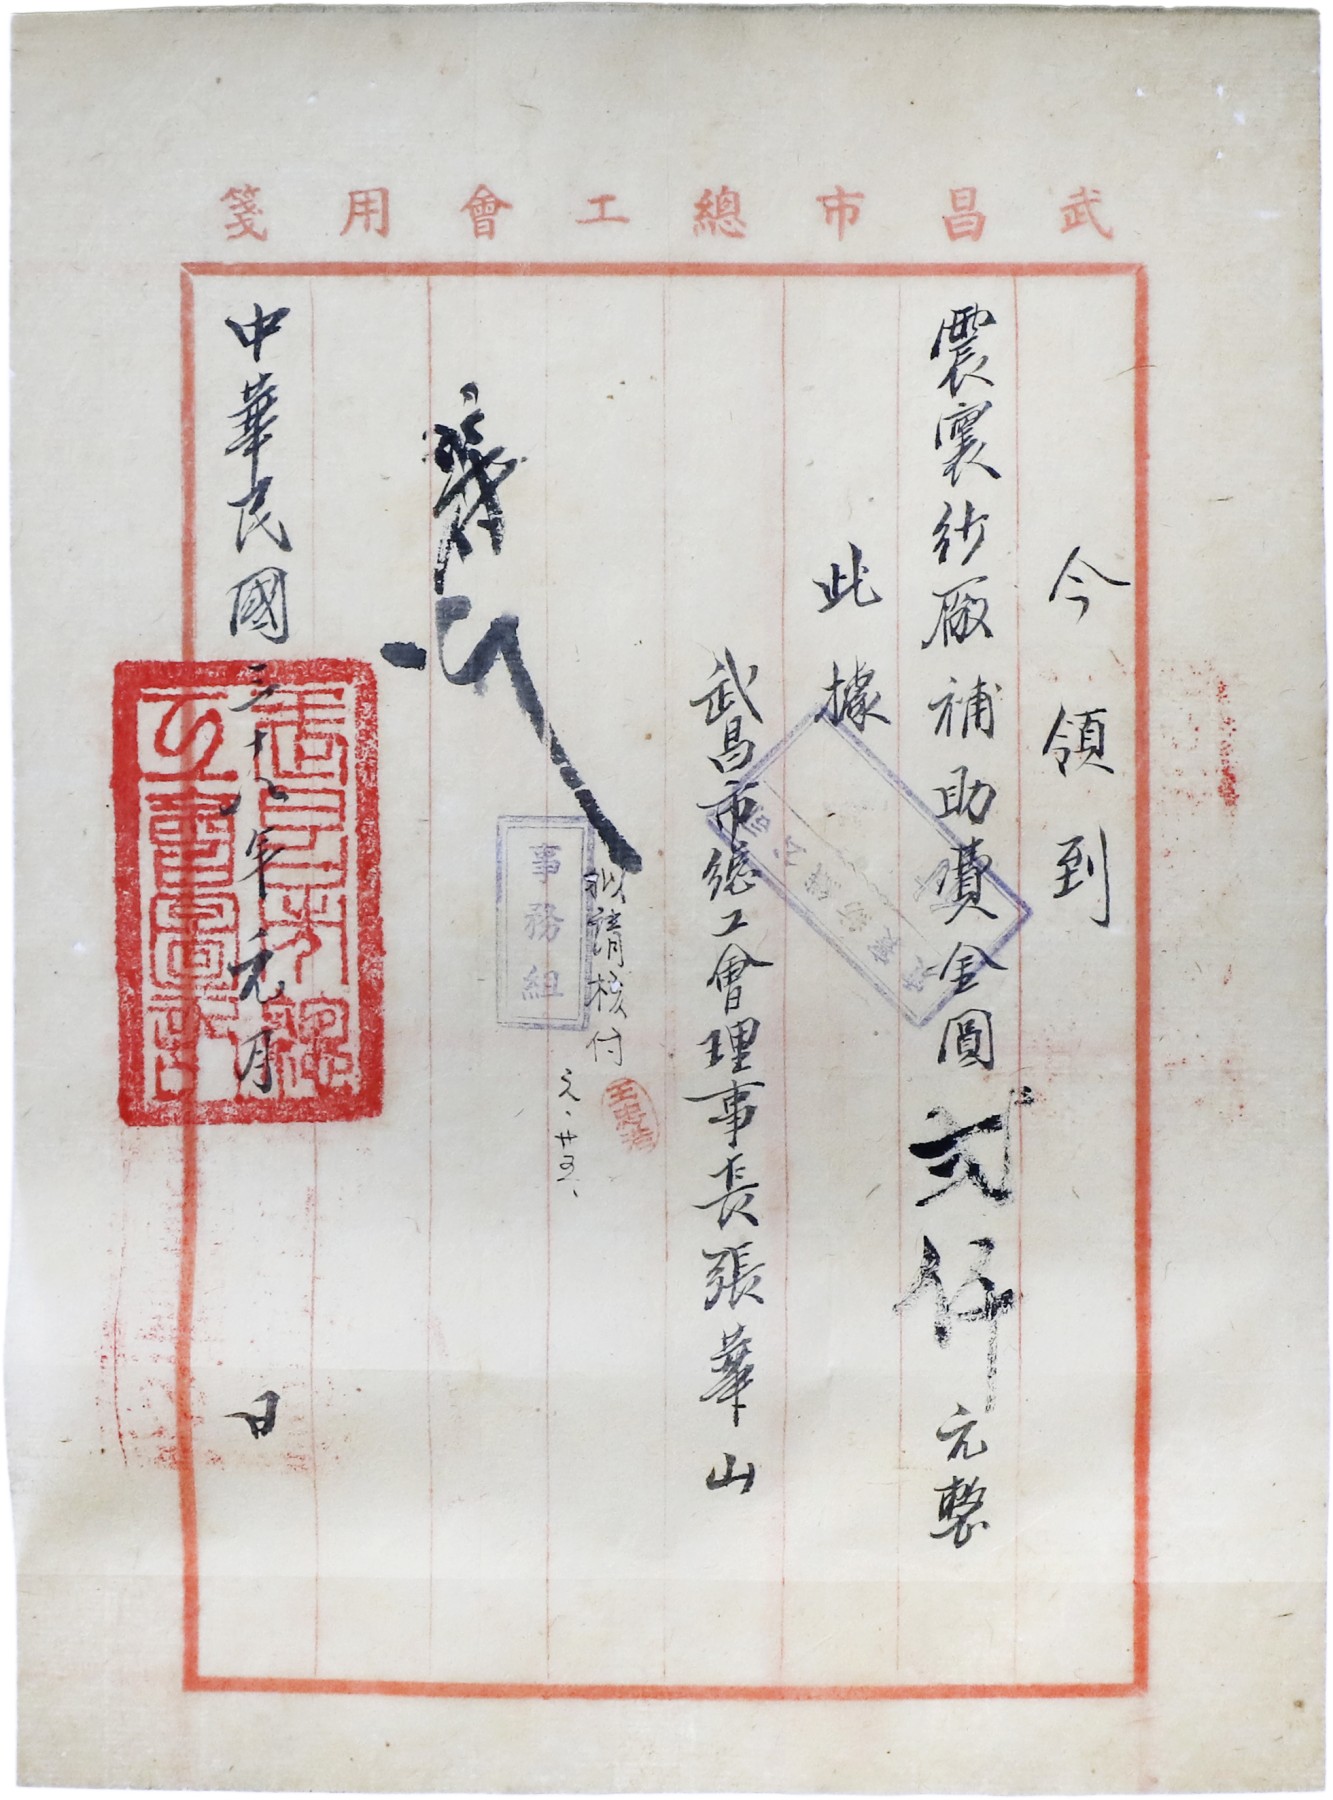 武昌市總工會用箋
今領到
震寰紗廠補助費金圓弍仟元整
此據
武昌市總工會理事長張華山
擬請核付
元、廿五、
事務組
中華民國三十八年元月 日